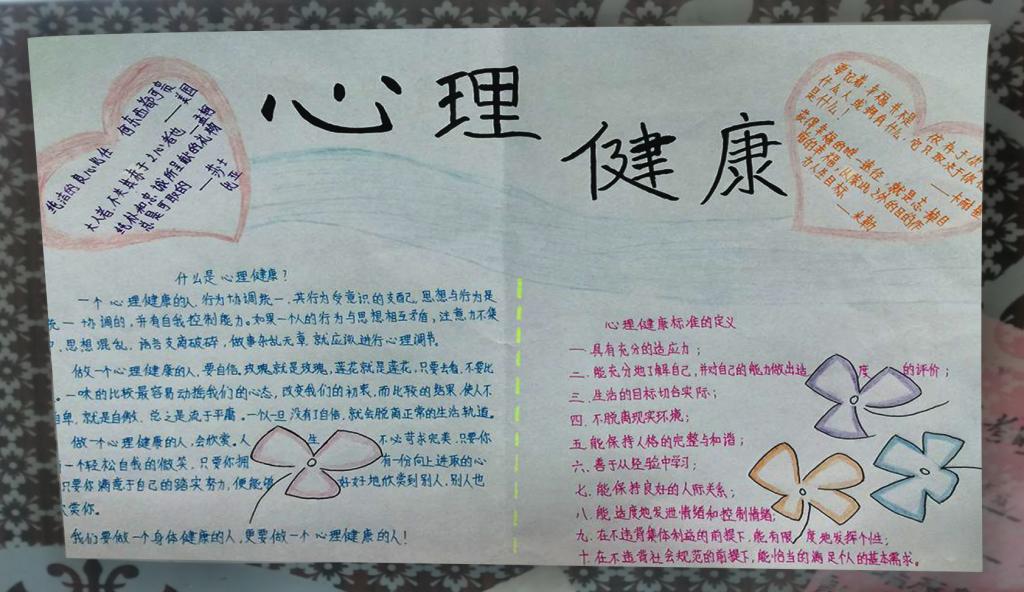 心理
健康
纯洁的良心比任何东西都可贵
——法国
大人者,不失其赤子之心者也——孟轲
纯朴和忠诚所呈献的礼物
总是可取的 ——莎士比亚
要记着幸福并不是依存于你是什么人或拥有什么,它只取决于你
是什么! ——卡耐基
获得幸福的唯一途径,就是忘掉目
的幸福,以除此之外的目的作
为人生目标 ——米勒
什么是心理健康?
一个心理健康的人,行为协调统一,其行为受意识的支配。思想与行为是
统一协调的,并有自我控制能力。如果一个人的行为与思想相互矛盾,注意力不集
,思想混乱,语言支离破碎,做事杂乱无章,就应该进行心理调节。
做一个心理健康的人,要自信,玫瑰就是玫瑰,莲花就是莲花,只要去看,不要比
。一味的比较最容易动摇我们的心态,改变我们的初衷,而比较的结果,使人不
自卑,就是自傲,总之是流于平庸。一但没有了自信,就会脱离正常的生活轨道。
做一个心理健康的人,会欣爱。人生不必苛求完美,只要你
一个轻松自我的微笑,只要你拥有一份向上进取的心
只要你满意于自己的踏实努力,便能够好好地欣赏到别人,别人也
欣赏你。
我们要做一个身体健康的人,更要做一个心理健康的人!
心理健康标准的定义
一.具有充分的适应力;
二.能充分地了解自己,并对自己的能力做出适度的评价;
三.生活的目标切合实际;
四.不脱离现实环境;
五.能保持人格的完整与和谐;
六.善于从经验中学习;
七.能保持良好的人际关系;
八.能适度地发泄情绪和控制情绪;
九.在不违背集体利益的前提下,能有限度地发挥个性;
十.在不违背社会规范的前提下,能恰当的满足个人的基本需求。